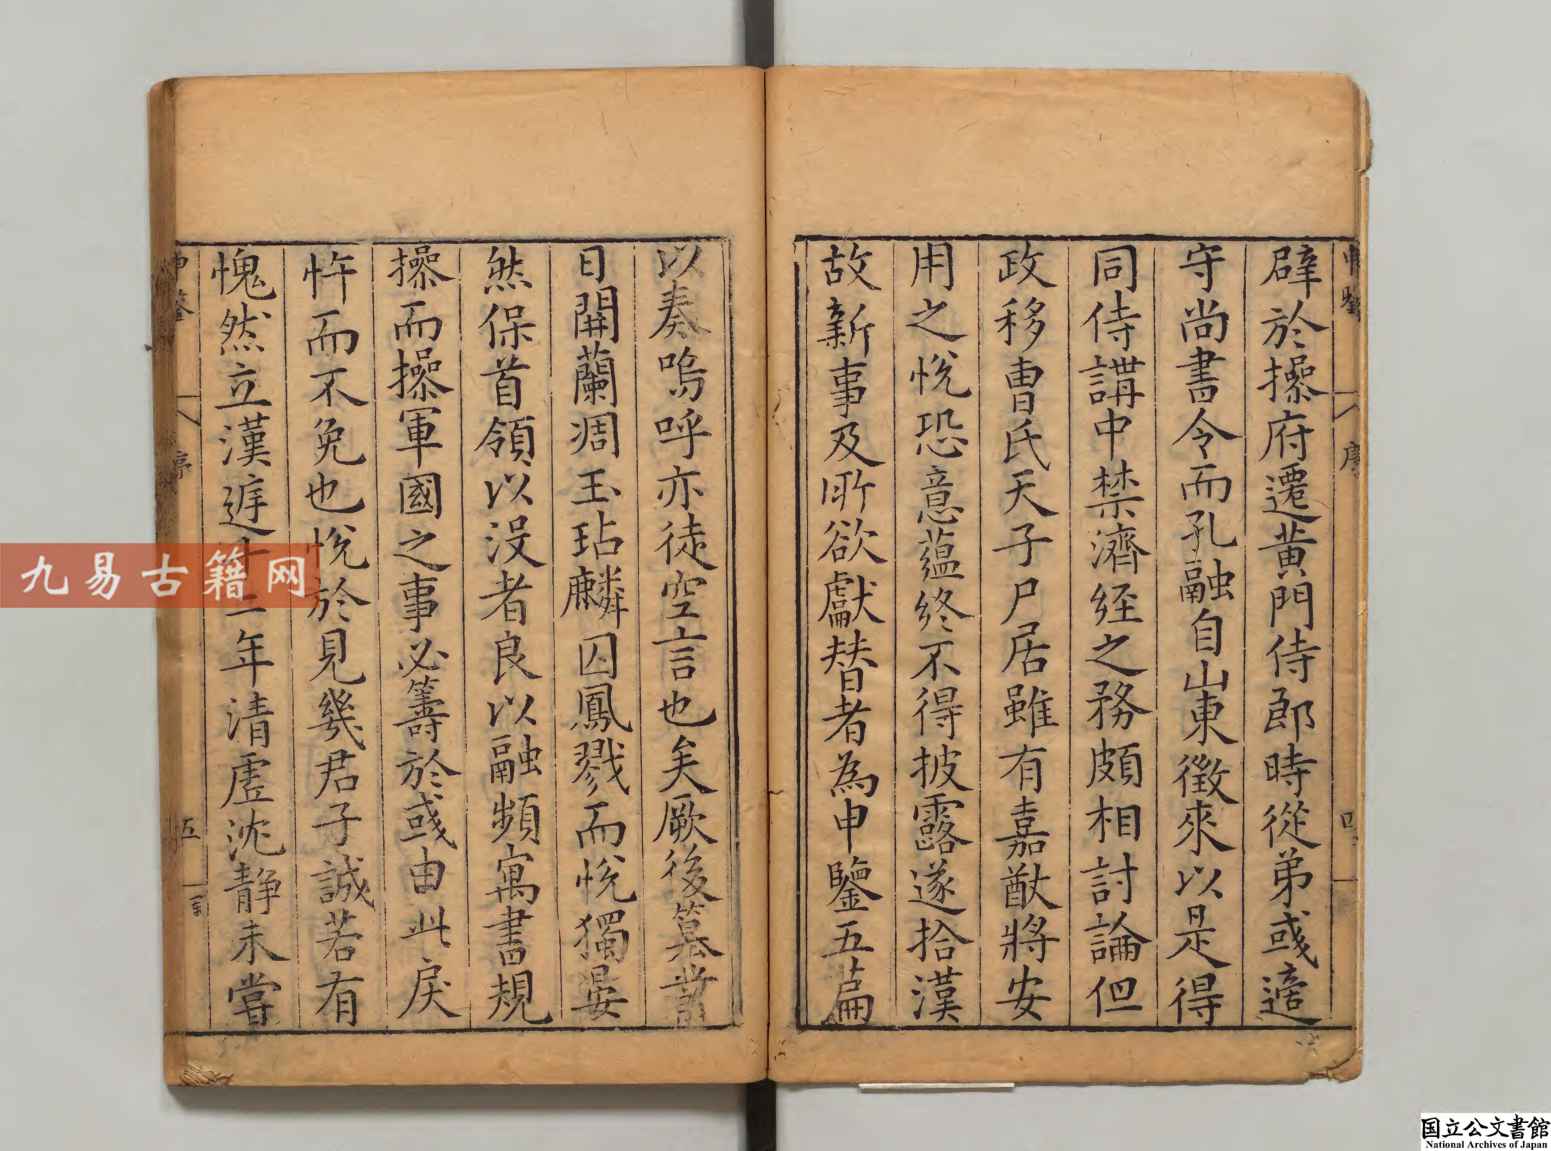 申鑒 序 四
辟於操府遷黃門侍郎時從弟彧適
守尚書令而孔融自山東徵來以是得
同侍講中禁濟經之務頗相討論但
政移曹氏天子尸居雖有嘉猷將安
用之悅恐意蘊終不得披露遂拾漢
故新事及所欲獻替者為申鑒五篇
以奏嗚呼亦徒空言也矣厥後篡
日開蘭凋玉玷麟囚鳳戮而悅獨晏
然保首領以沒者良以融頻寓書規
操而操軍國之事必籌於彧由此戾
忤而不免也悅於見幾君子誠若有
愧然立漢廷十二年清虛沈靜未嘗
申鑒 序 五
九易古籍网
国立公文書館
National Archives of Japan